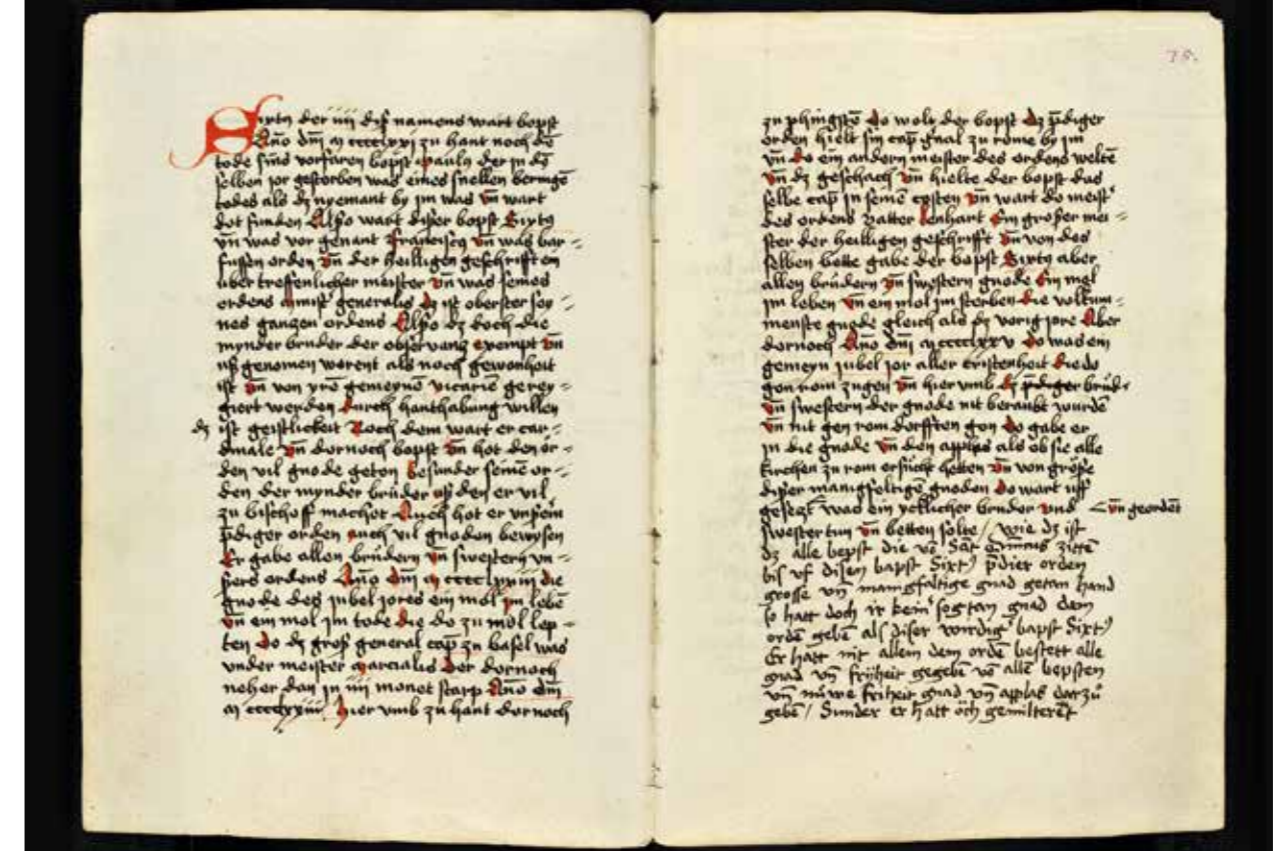 Sixtq der iiii diß namens wart bopst
Año dm̄ m cccclxxi zu hant noch dē
tode sins vorfaren bopst pauly der in dē
selben jor gestorben was eines snellen
todes als dz nyemant by im was vn̄ wart
dot funden Also wart diser bopst Sixtq
vn̄ was vor genant Franciscq vn̄ was bar =
fussen orden vn̄ der heilligen geschrifft ein
uber treffenlicher meister vn̄ was seines
ordens generalis dz ist oberster
nes ganzen ordens Also dz doch die
mynder bruder der obser̄vanz exempt vn̄
uß genomen werent als noch gewonheit
ist vn̄ von yrē gemeynē vicariē gerey =
giert werden durch hanthabung willen
dz ist geistlickeit Noch dem wart er car =
dinale vn̄ dornoch bopst vn̄ hot den or =
den vil gnode geton besunder seinē or =
den der mynder brüder uß den er vil
zu bischoff machet Auch hot er vnserm
p̄diger orden auch vil gnoden bewysen
Er gabe allen brüdern vn̄ swestern vn =
sers ordens Año dm̄ m cccclxxiii die
gnode des jubel jores ein mol im lebē
vn̄ ein mol im tode die do zu mol lep =
ten do dz groß general cap̄ zu basel was
vnder meister marcialis der dornoch
neher dan in iiii monet starp Año dm̄
m cccclxxiii Hier vmb zu hant dornoch
75.
zu phingstē do wolt der bopst dz p̄diger
orden hielt sin cap̄ gn̄al zu rome by im
vn̄ do ein andern meister des ordens weltē
vn̄ dz geschach vn̄ hielte der bopst das
selbe cap̄ in seinē costen vn̄ wart do meist'
des ordens vatter lenhart Ein großer mei =
ster der heilligen geschrifft vn̄ von des
selben bette gabe der bopst Sixtq aber
allen brüdern vn̄ swestern gnode Ein mol
im leben vn̄ ein mol im sterben die volkum =
menste gnode gleich als dz vorig jore Aber
dornoch Año dm̄ m cccclxxv do was ein
gemeyn jubel jor aller cristenheit die do
gon rom zugen vn̄ hier vmb dz p̄diger brüd'
vn̄ swestern der gnode nit beraubt wurdē
vn̄ nit gen rom dorfften gon do gabe er
in die gnode vn̄ den applas als ob sie alle
kirchen zu rom ersücht hetten vn̄ von größe
diser manigfeltigē gnoden do wart uff
gesezt was ein yeklicher bruder vnd vn̄ geordēt
swester tun vn̄ betten solte / wie dz ist
dz alle bepst die vō Sāt zittē
bis vf disen bapst Sixtq p̄dier orden
grosse vn̄ manigfaltige gnad getan hand
so hatt doch ir kein' sogtan gnad dem
ordē gebē als diser wirdig' bapst Sixtq
Er hatt nit allein dem ordē bestett alle
gnad vn̄ friheit gegebē vō allē bepsten
vn̄ nüwe friheit gnad vn̄ applas darzů
gebē / Sunder er hatt öch gemilterēt